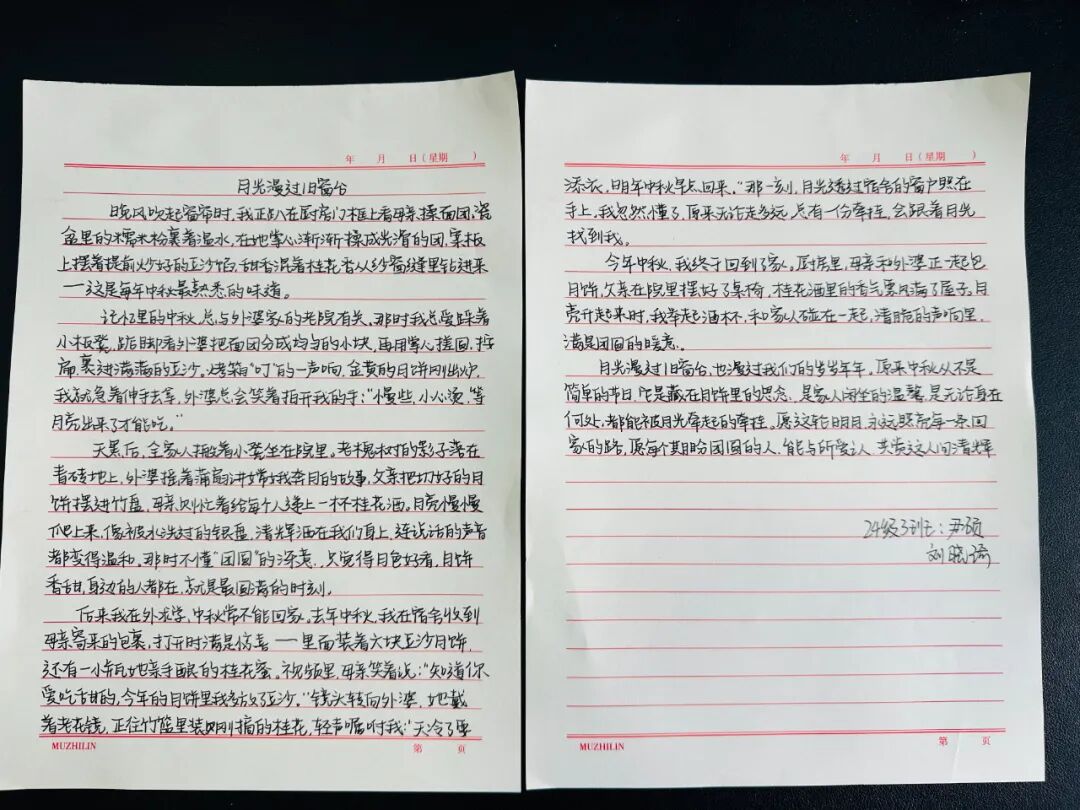 年 月 日（星期 ）
月光漫过旧窗台
晚风吹起窗帘时，我正趴在厨房门框上看母亲揉面团，瓷
盆里的糯米粉裹着温水，在她掌心渐渐揉成光滑的团，案板
上摆着提前炒好的豆沙馅，甜香混着桂花香从纱窗缝里钻进来
——这是每年中秋最熟悉的味道。
记忆里的中秋，总与外婆家的老院有关，那时我总爱踩着
小板凳，踮脚看外婆把面团分成均匀的小块，再用掌心搓圆，按
扁裹进满满的豆沙。烤箱“叮”的一声响，金黄的月饼刚出炉，
我就急着伸手去拿，外婆总会笑着拍开我的手：“慢些，小心烫，等
月亮出来了才能吃。”
天黑后，全家人搬着小凳坐在院里。老槐树的影子落在
青砖地上，外婆摇着蒲扇讲嫦娥奔月的故事，父亲把切好的月
饼摆进竹盘，母亲则忙着给每个人递上一杯桂花酒。月亮慢慢
爬上来，像被水洗过的银盘，清辉洒在我们身上，连说话的声音
都变得温和。那时不懂“团圆”的深意，只觉得月色好看，月饼
香甜，身边的人都在，就是最圆满的时刻。
后来我在外求学，中秋常不能回家。去年中秋，我在宿舍收到
母亲寄来的包裹，打开时满是惊喜——里面装着六块豆沙月饼，
还有一小瓶她亲手酿的桂花蜜。视频里，母亲笑着说：“知道你
爱吃甜的，今年的月饼里我多放了豆沙。”镜头转向外婆，她戴
着老花镜，正往竹篮里装刚摘的桂花，轻声嘱咐我：“天冷了要
MUZHILIN
第 页
年 月 日（星期 ）
添衣，明年中秋早点回来。”那一刻，月光透过宿舍的窗户照在
手上，我忽然懂了，原来无论走多远，总有一份牵挂，会跟着月光
找到我。
今年中秋，我终于回到了家。厨房里，母亲和外婆正一起包
月饼，父亲在院里摆好了桌椅，桂花酒的香气飘满了屋子。月
亮升起来时，我举起酒杯，和家人碰在一起，清脆的声响里，
满是团圆的暖意。
月光漫过旧窗台，也漫过我们的岁岁年年。原来中秋从不是
简单的节日，它是藏在月饼里的思念，是家人围坐的温馨，是无论身在
何处，都能被月光牵起的牵挂。愿这轮明月，永远照亮每一条回
家的路，愿每个期盼团圆的人，能与所爱之人，共赏这人间清辉
24级3班：尹硕
刘晓
MUZHILIN
第 页